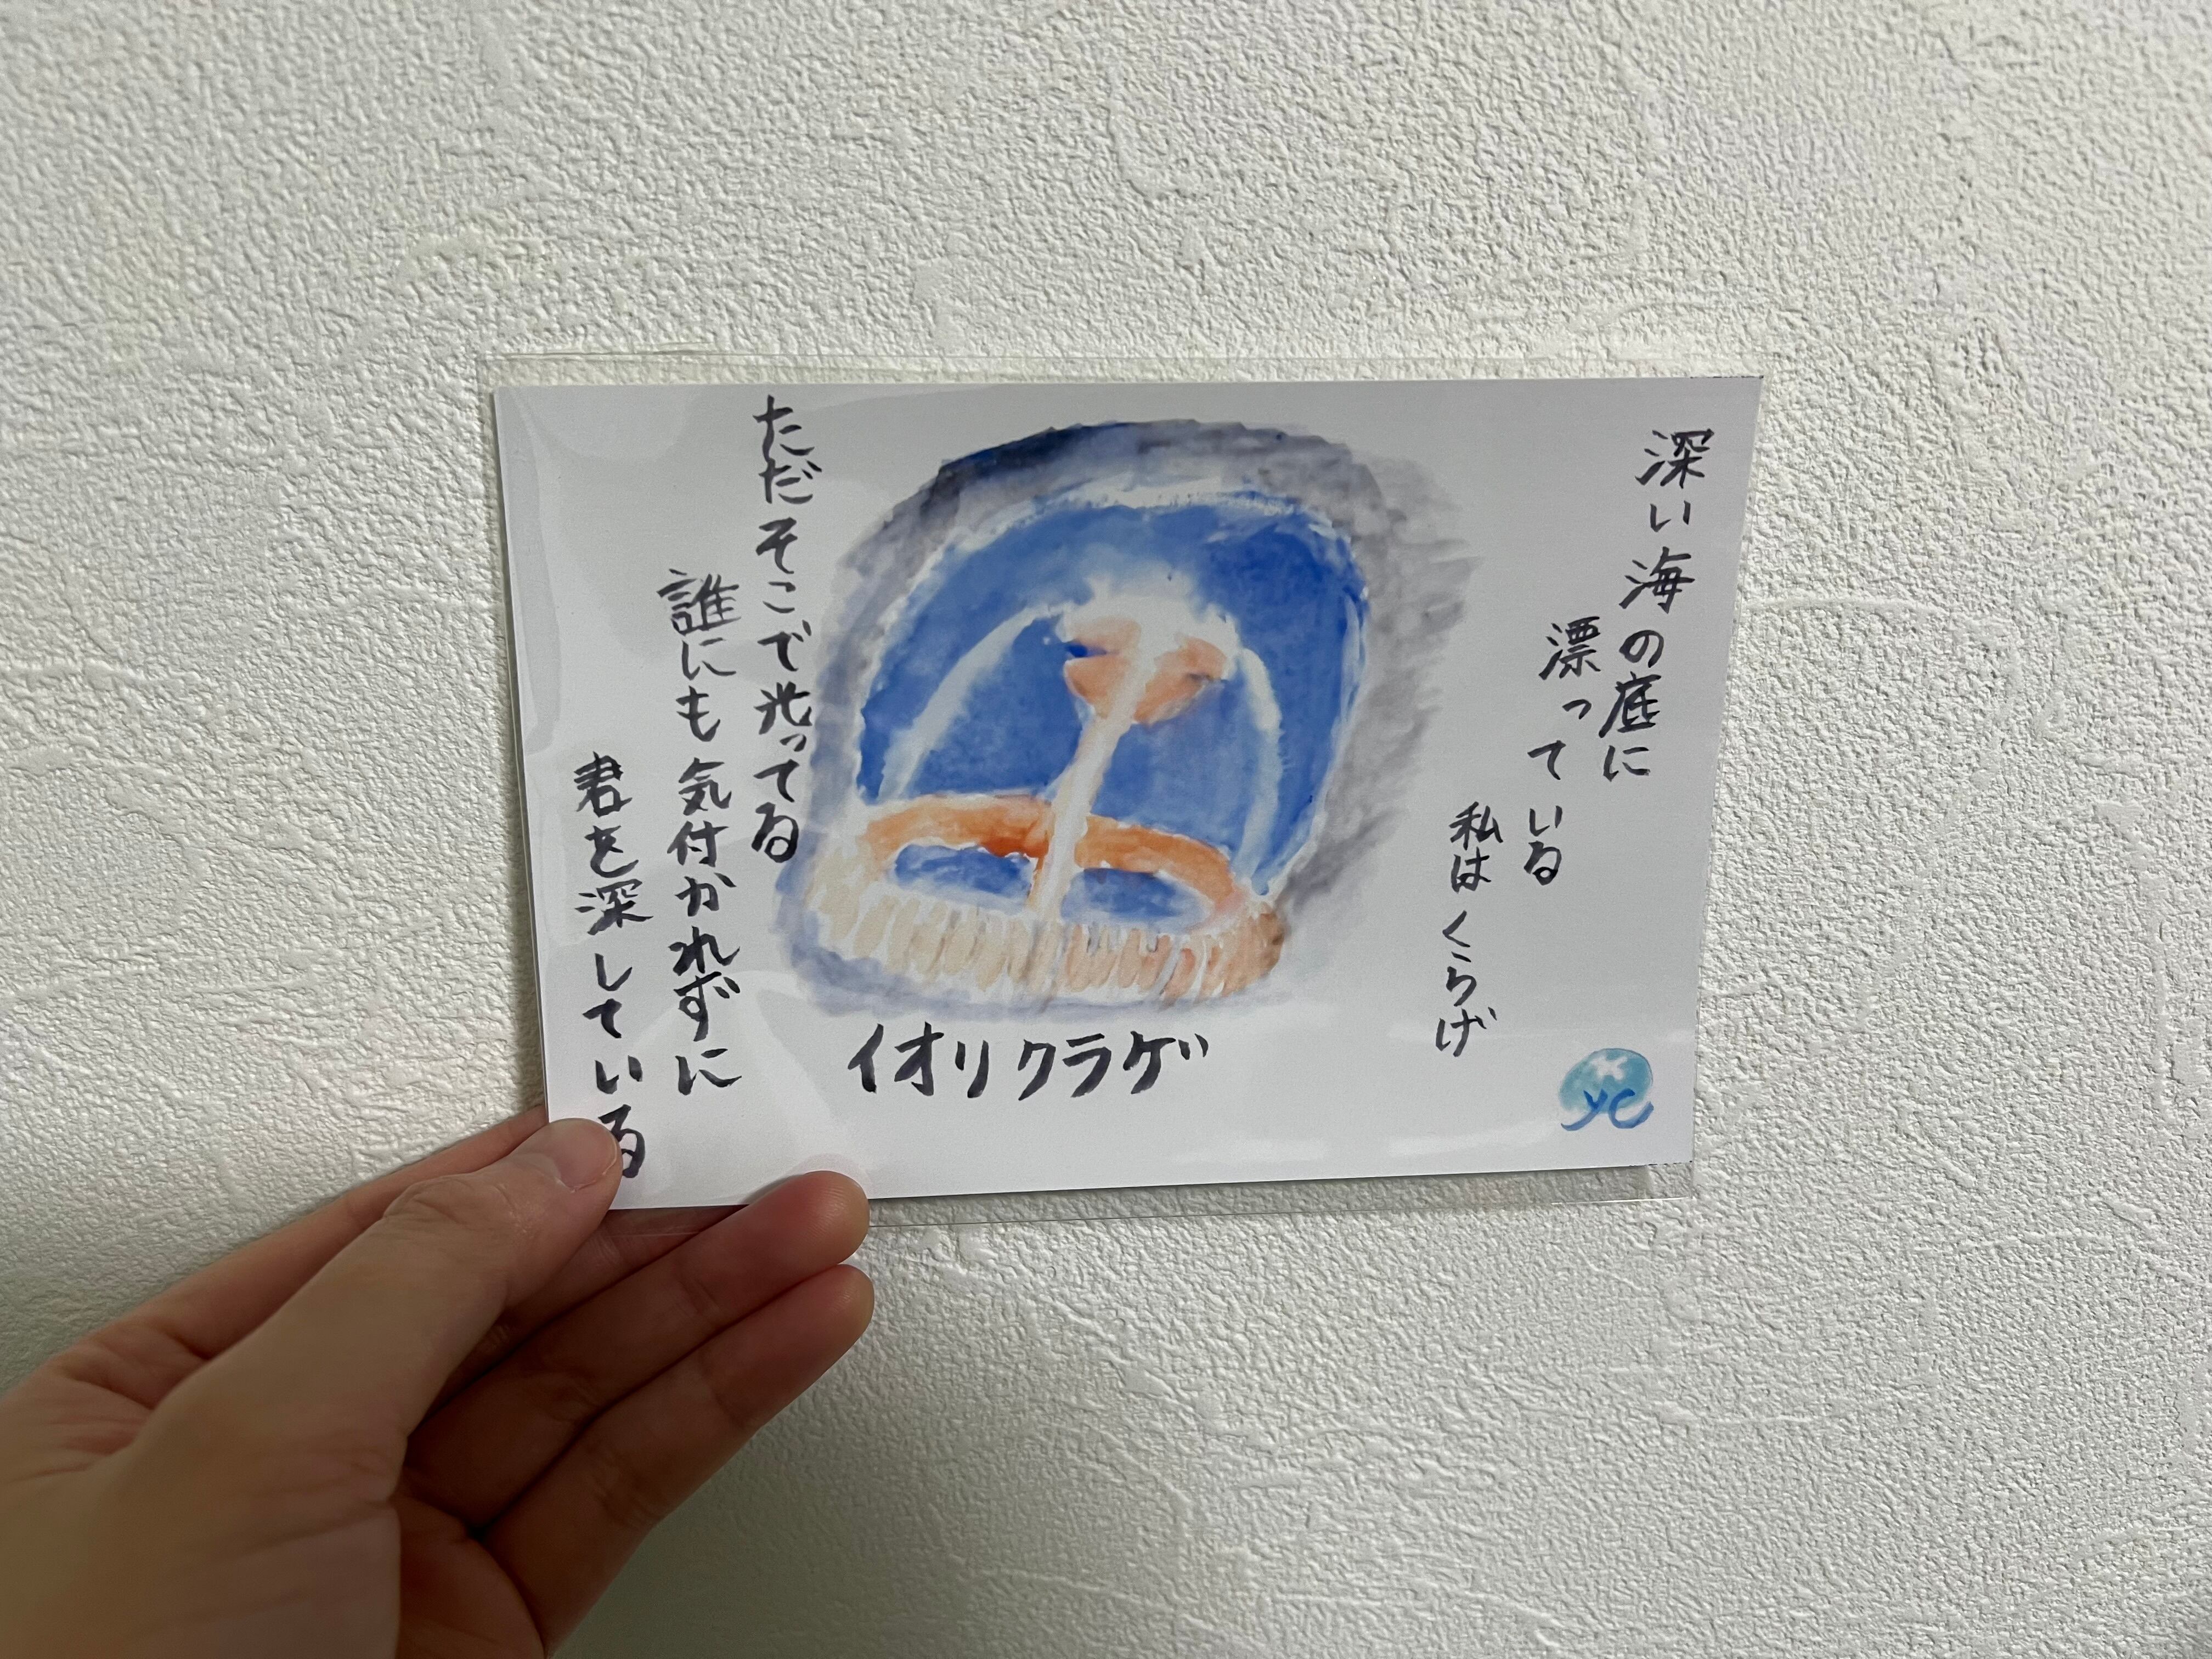 深い海の底に
漂っている
私はくらげ
ただそこで光ってる
誰にも気付かれずに
君を深している
イオリクラゲ
yc